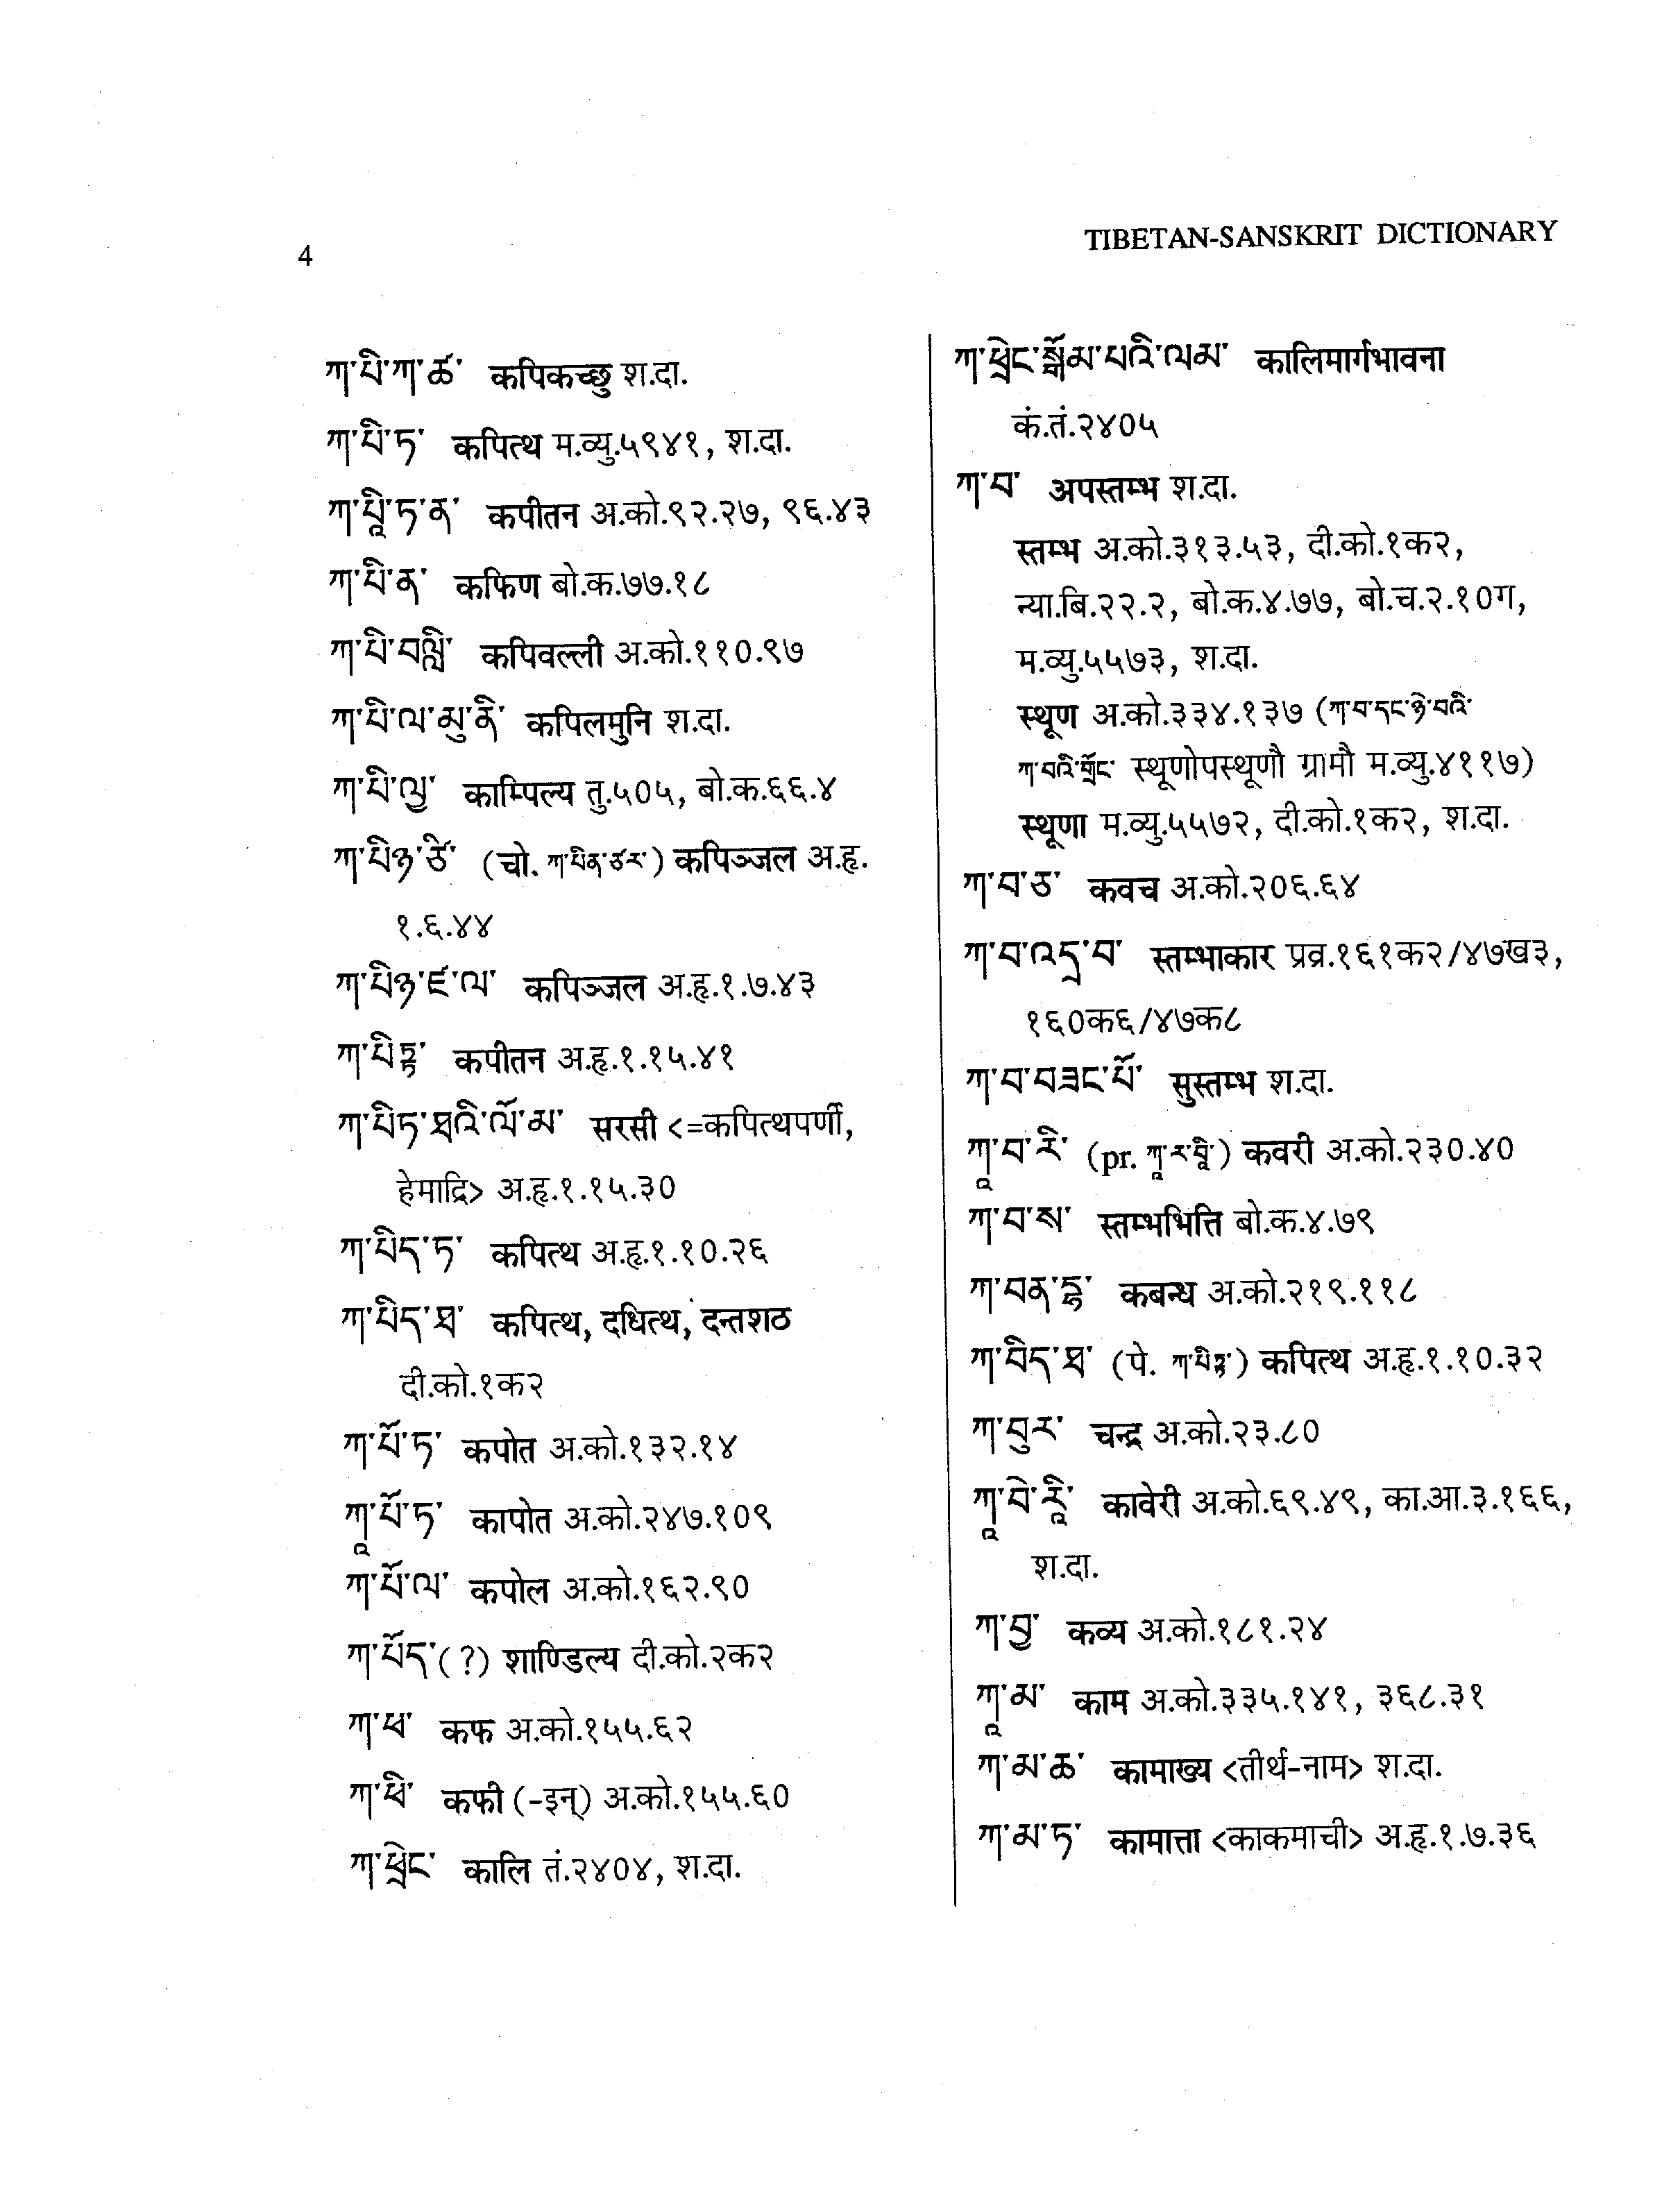 4
TIBETAN-SANSKRIT DICTIONARY
ཀ་པི་ཀ་ཚ་ कपिकच्छु श.दा.
ཀ་པི་ཏ་ कपित्थ म.व्यु.५९४१, श.दा.
ཀ་པཱི་ཏ་ན་ कपीतन अ.को.९२.२७, ९६.४३
ཀ་པི་ན་ कफिण बो.क.७७.१८
ཀ་པི་བལླི་ कपिवल्ली अ.को.११०.९७
ཀ་པི་ལ་མུ་ནི་ कपिलमुनि श.दा.
ཀ་པི་ལྱ་ काम्पिल्य तु.५०५, बो.क.६६.४
ཀ་པིཉ་ཙེ་ (चो. ཀ་པིན་ཙར་) कपिञ्जल अ.हृ.
१.६.४४
ཀ་པིཉ་ཛ་ལ་ कपिञ्जल अ.हृ.१.७.४३
ཀ་པིཏྟ་ कपीतन अ.हृ.१.१५.४१
ཀ་པིཏ་ཐའི་ལོ་མ་ सरसी <=कपित्थपर्णी,
हेमाद्रि> अ.हृ.१.१५.३०
ཀ་པིད་ཏ་ कपित्थ अ.हृ.१.१०.२६
ཀ་པིད་ཐ་ कपित्थ, दधित्थ, दन्तशठ
दी.को.१क२
ཀ་པོ་ཏ་ कपोत अ.को.१३२.१४
ཀཱ་པོ་ཏ་ कापोत अ.को.२४७.१०९
ཀ་པོ་ལ་ कपोल अ.को.१६२.९०
ཀ་པོད་(?) शाण्डिल्य दी.को.२क२
ཀ་ཕ་ कफ अ.को.१५५.६२
ཀ་ཕི་ कफी (-इन्) अ.को.१५५.६०
ཀ་ཕྲེང་ कालि तं.२४०४, श.दा.
ཀ་ཕྲེང་སྒོམ་པའི་ལམ་ कालिमार्गभावना
कं.तं.२४०५
ཀ་བ་ अपस्तम्भ श.दा.
स्तम्भ अ.को.३१३.५३, दी.को.१क२,
न्या.बि.२२.२, बो.क.४.७७, बो.च.२.१०ग,
म.व्यु.५५७३, श.दा.
स्थूण अ.को.३३४.१३७ (ཀ་བ་དང་ཉེ་བའི་
ཀ་བའི་གྲོང་ स्थूणोपस्थूणौ ग्रामौ म.व्यु.४११७)
स्थूणा म.व्यु.५५७२, दी.को.१क२, श.दा.
ཀ་བ་ཅ་ कवच अ.को.२०६.६४
ཀ་བ་འདྲ་བ་ स्तम्भाकार प्रव्र.१६१क२/४७ख३,
१६०क६/४७क८
ཀ་བ་བཟང་པོ་ सुस्तम्भ श.दा.
ཀཱ་བ་རི་ (pr. ཀཱ་ར་བཱི་) कवरी अ.को.२३०.४०
ཀ་བ་ས་ स्तम्भभित्ति बो.क.४.७९
ཀ་བན་དྷ་ कबन्ध अ.को.२१९.११८
ཀ་བིད་ཐ་ (पे. ཀ་པིཏྟ་) कपित्थ अ.हृ.१.१०.३२
ཀ་བུར་ चन्द्र अ.को.२३.८०
ཀཱ་བེ་རཱི་ कावेरी अ.को.६९.४९, का.आ.३.१६६,
श.दा.
ཀ་བྱ་ कव्य अ.को.१८१.२४
ཀཱ་མ་ काम अ.को.३३५.१४१, ३६८.३१
ཀ་མ་ཆ་ कामाख्य <तीर्थ-नाम> श.दा.
ཀ་མ་ཏ་ कामात्ता <काकमाची> अ.हृ.१.७.३६